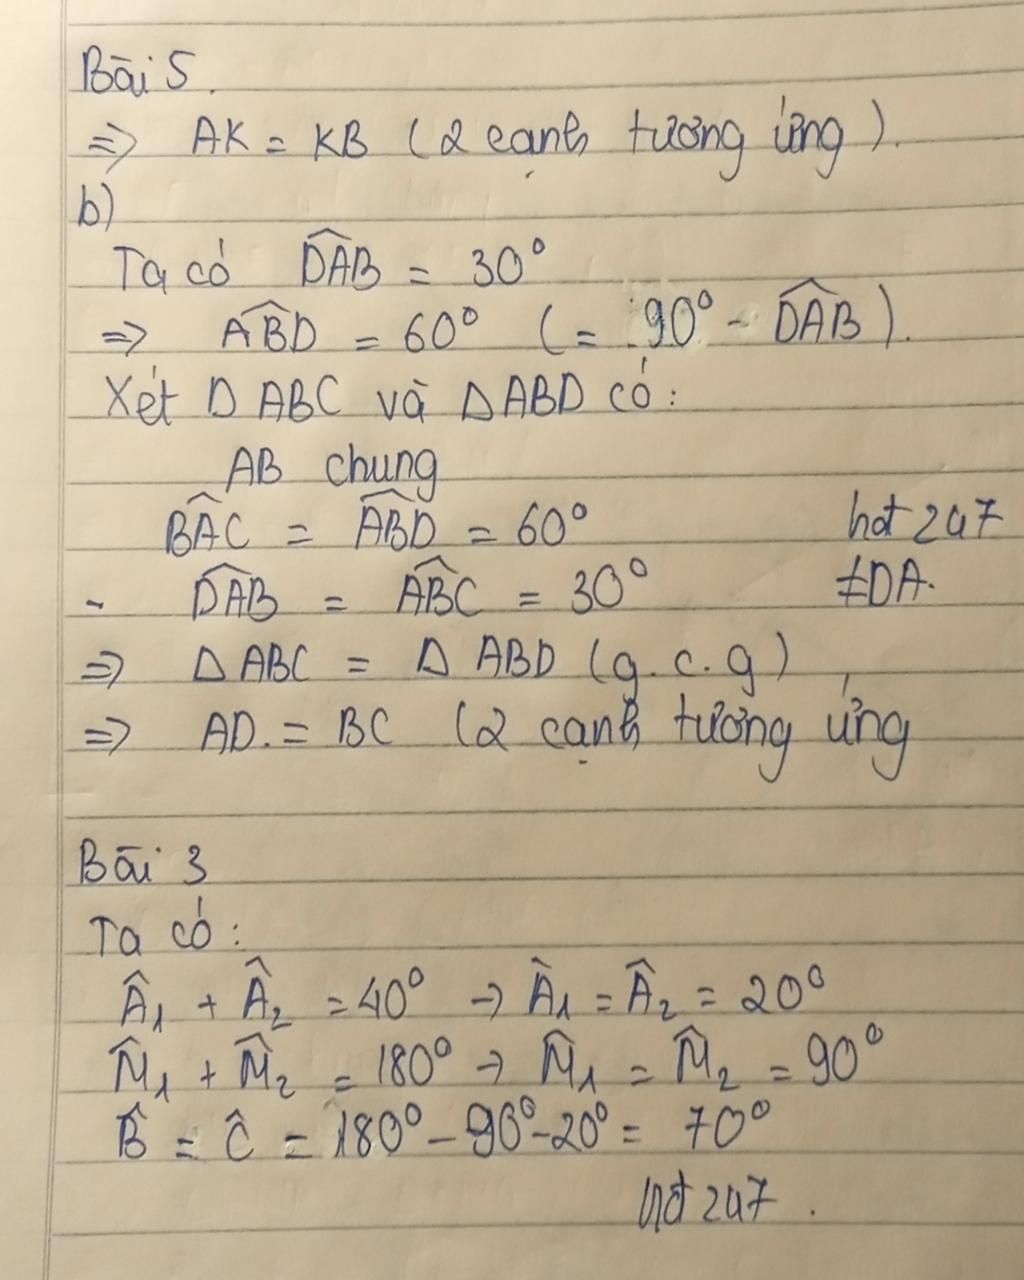 Bài 5.
=> AK = KB (2 cạnh tương ứng).
b)
Ta có D̂AB = 30°
=> ÂBD = 60° (= 90° - D̂AB).
Xét Δ ABC và ΔABD có:
AB chung
B̂AC = ÂBD = 60° hot 247
- D̂AB = ÂBC = 30° ≠DA.
=> Δ ABC = Δ ABD (g.c.g)
=> AD. = BC (2 cạnh tương ứng
Bài 3
Ta có:
Â₁ + Â₂ = 40° -> Â₁ = Â₂ = 20°
M̂₁ + M̂₂ = 180° -> M̂₁ = M̂₂ = 90°
B̂ = Ĉ = 180° - 90° - 20° = 70°
hot 247.